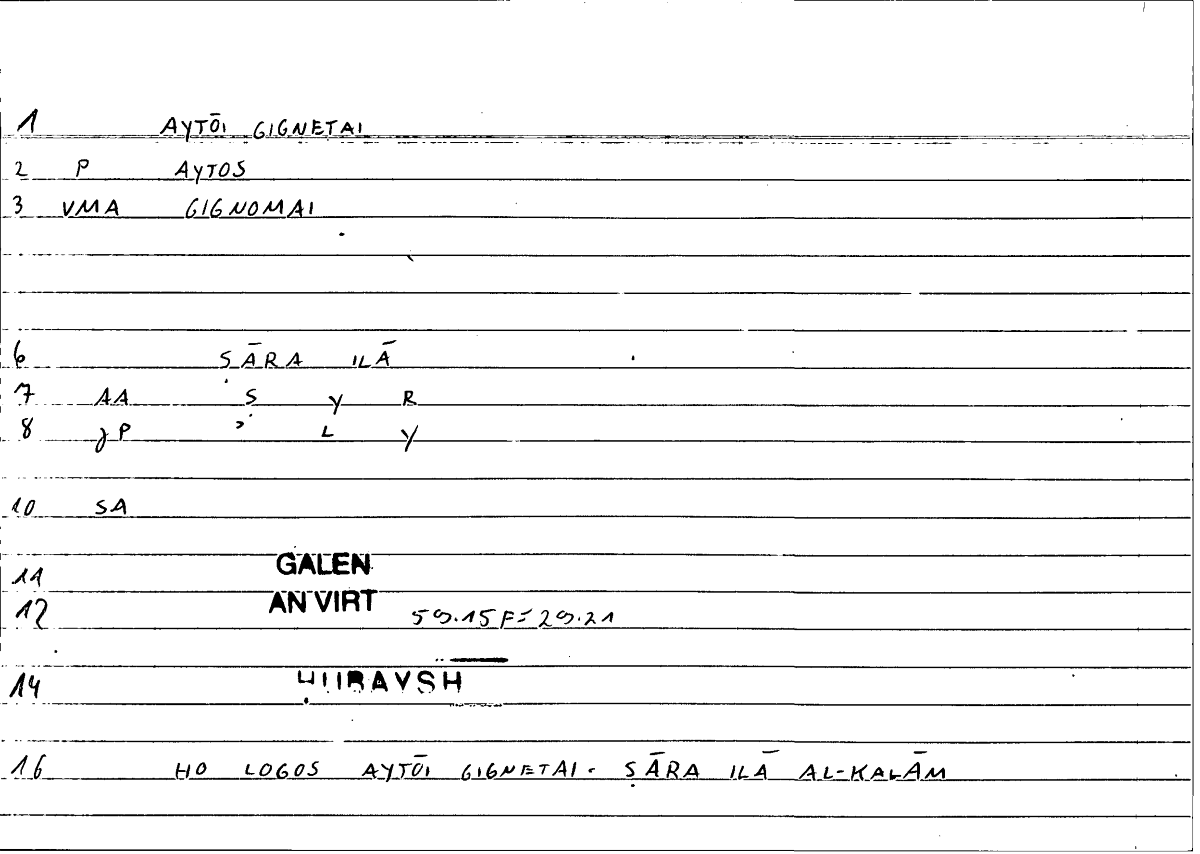 1 AYTŌI GIGNETAI
2 P AYTOS
3 VMA GIGNOMAI
6 ṢĀRA ILĀ
7 AA Ṣ Y R
8 gP ʾ L Y
10 SA
11 GALEN
12 AN VIRT 59.15F=29.21
14 ḤUBAYSH
16 HO LOGOS AYTŌI GIGNETAI. ṢĀRA ILĀ AL-KALĀM